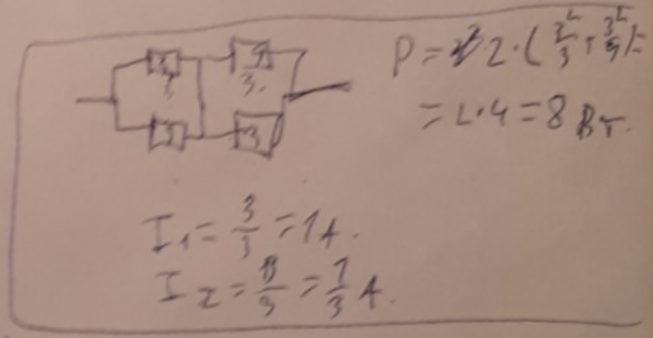 P = 2 · ( 3²/3 + 3²/9 ) =
= 2 · 4 = 8 Вт.
3
3
I₁ = 3/3 = 1 A.
I₂ = 3/9 = 1/3 A.